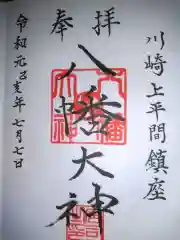 奉拝
川崎上平間鎮座
八幡大神
令和元己亥年七月七日